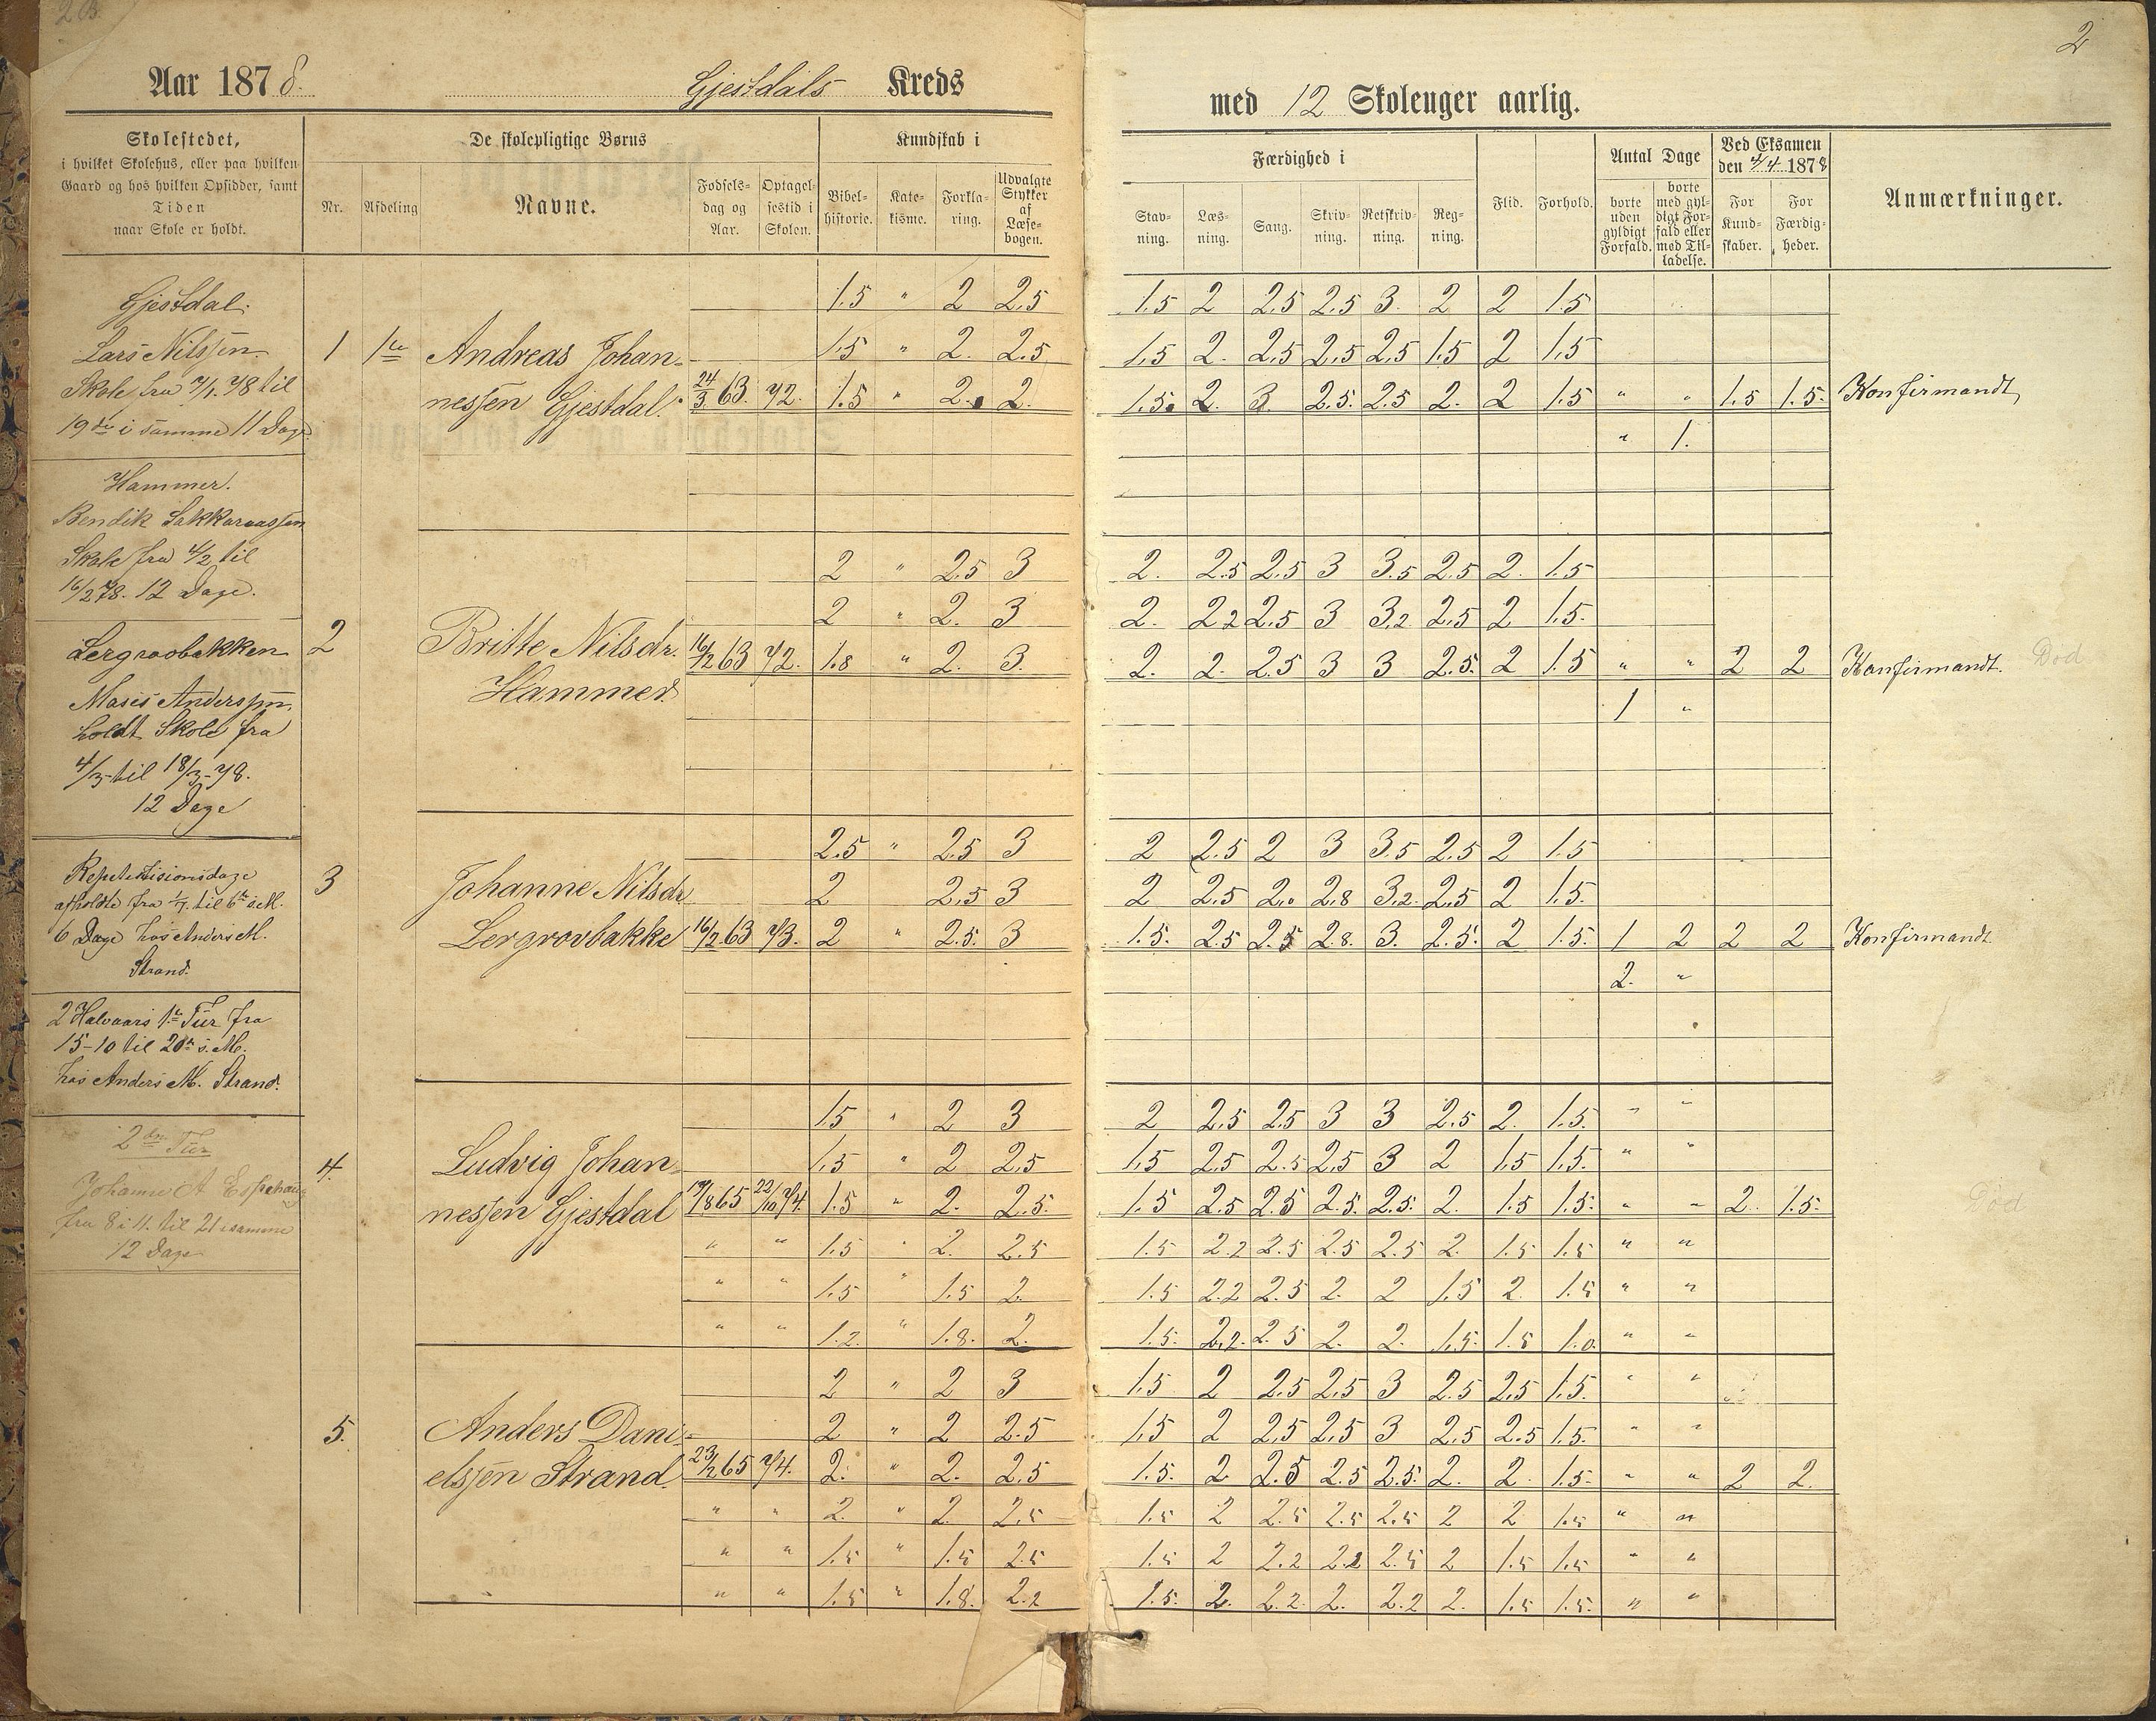 2 B.
2
Aar 1878. Gjestdals Kreds
med 12 Skoleuger aarlig.
Skolestedet,
i hvilket Skolehus, eller paa hvilken
Gaard og hos hvilken Opsidder, samt
Tiden
naar Skole er holdt.
De skolepligtige Børns
Nr.
Afdeling
Navne.
Fødsels-
dag og
Aar.
Optagel-
sestid i
Skolen.
Kundskab i
Bibel-
historie.
Kate-
kisme.
Forkla-
ring.
Udvalgte
Stykker
af
Læse-
bogen.
Færdighed i
Stav-
ning.
Læs-
ning.
Sang.
Skriv-
ning.
Retskriv-
ning.
Reg-
ning.
Flid.
Forhold.
Antal Dage
borte
uden
gyldigt
Forfald.
borte
med gyl-
digt For-
fald eller
med Til-
ladelse.
Ved Eksamen
den 4/4 1878
For
Kund-
skaber.
For
Færdig-
heder.
Anmærkninger.
Gjestdal.
Lars Nilssen.
Skole fra 7/1. 78 til
19de i samme 11 Dage
Hammer.
Bendik Sakkariassen
Skole fra 4/2 til
16/2 78. 12 Dage.
Lergrovbakken
Moses Anderssen.
holdt Skole fra
4/3 til 18/3-78.
12 Dage
Repetitionsdage
afholdte fra 1/7. til 6te s. M.
6 Dage hos Anders M.
Strand.
2 Halvaars 1ste Tur fra
15-10 til 20de s. M.
hos Anders M. Strand.
2den Tur
Johanne A Espehaug
fra 8 i 11. til 21 i samme
12 Dage
1.5 " 2 2.5 1.5 2 2.5 2.5 3. 2 2 1.5
1 1ste Andreas Johan- 1.5 " 2. 2.5 1.5 2. 2.5 2.5 2.5 1.5 2 1.5
nessen Gjestdal. 24/3 63. 72. 1.5 " 2. 2. 1.5. 2. 3. 2.5. 2.5 2. 2 1.5 " " 1.5 1.5. Konfirmandt
" 1.
2 " 2.5 3 2. 2.5 2.5 3 3.5 2.5 2. 1.5
2 " 2. 3 2. 2.2 2.5 3 3.2 2.5 2 1.5.
2 Britte Nilsdr. 16/12 63 72. 1.8 " 2. 3. 2. 2. 2.5 3 3 2.5. 2 1.5 " " 2 2 Konfirmandt. Död
Hammer.
1 "
2.5 " 2.5 3 2 2.5 2 3 3.5 2.5 2 1.5
3 Johanne Nilsdr 2 2.5 3 2 2.5 2. 2.8 3.2. 2.5 2 1.5.
Lergrovbakke 16/2 63 73. 2 " 2.5. 3 1.5. 2.5 2.5 2.8. 3. 2.5. 2 1.5. 1 2 2 2 Konfirmandt
2. "
1.5 " 2 3 2 2.5 2.5 3 3 2.5 2. 1.5. " "
4. Ludvig Johan- 1.5 " 2 2.5 1.5 2.5 2.5 2.5 3 2 1.5 1.5. " "
nessen Gjestdal 19/8 65 22/10 74. 1.5 " 2. 2.5. 1.5 2.5 2.5 2.5. 2.5. 2. 1.5 1.5. " " 2 1.5. Död
" " 1.5 " 2. 2.5 1.5 2.2 2.5 2.5 2.5 2. 1.5 1.5 " "
" " 1.5 " 1.5 2. 1.5 2.2 2.5 2. 2 1.5 2. 1.5 " "
" " 1.2. " 1.8. 2. 1.5. 2.2. 2.5 2. 2. 1.5. 1.5 1.0. " "
2 " 2 3 1.5 2 2.5 2.5 3 2.5 2.5 1.5. " "
5. Anders Dani- 2 " 2 2.5 1.5 2 2.5 2.5 3 2.5 2.5 1.5. " "
elssen Strand. 23/12 65 74. 2. " 2. 2.5 1.5. 2 2.5 2.5 2.5. 2. 2. 1.5. " " 2 2.
" " 2. " 2. 2.5 1.5 2 2.5 2.5 2.5 2 2 1.5 " "
" " 1.5 " 1.5 2.5 1.5 2 2.2 2.2 2.5 2 1.5 1.5 " "
" " 1.5 " 1.8. 2.2 1.5. 2. 2.2. 2. 2.2 2. 1.5 1.5. " "